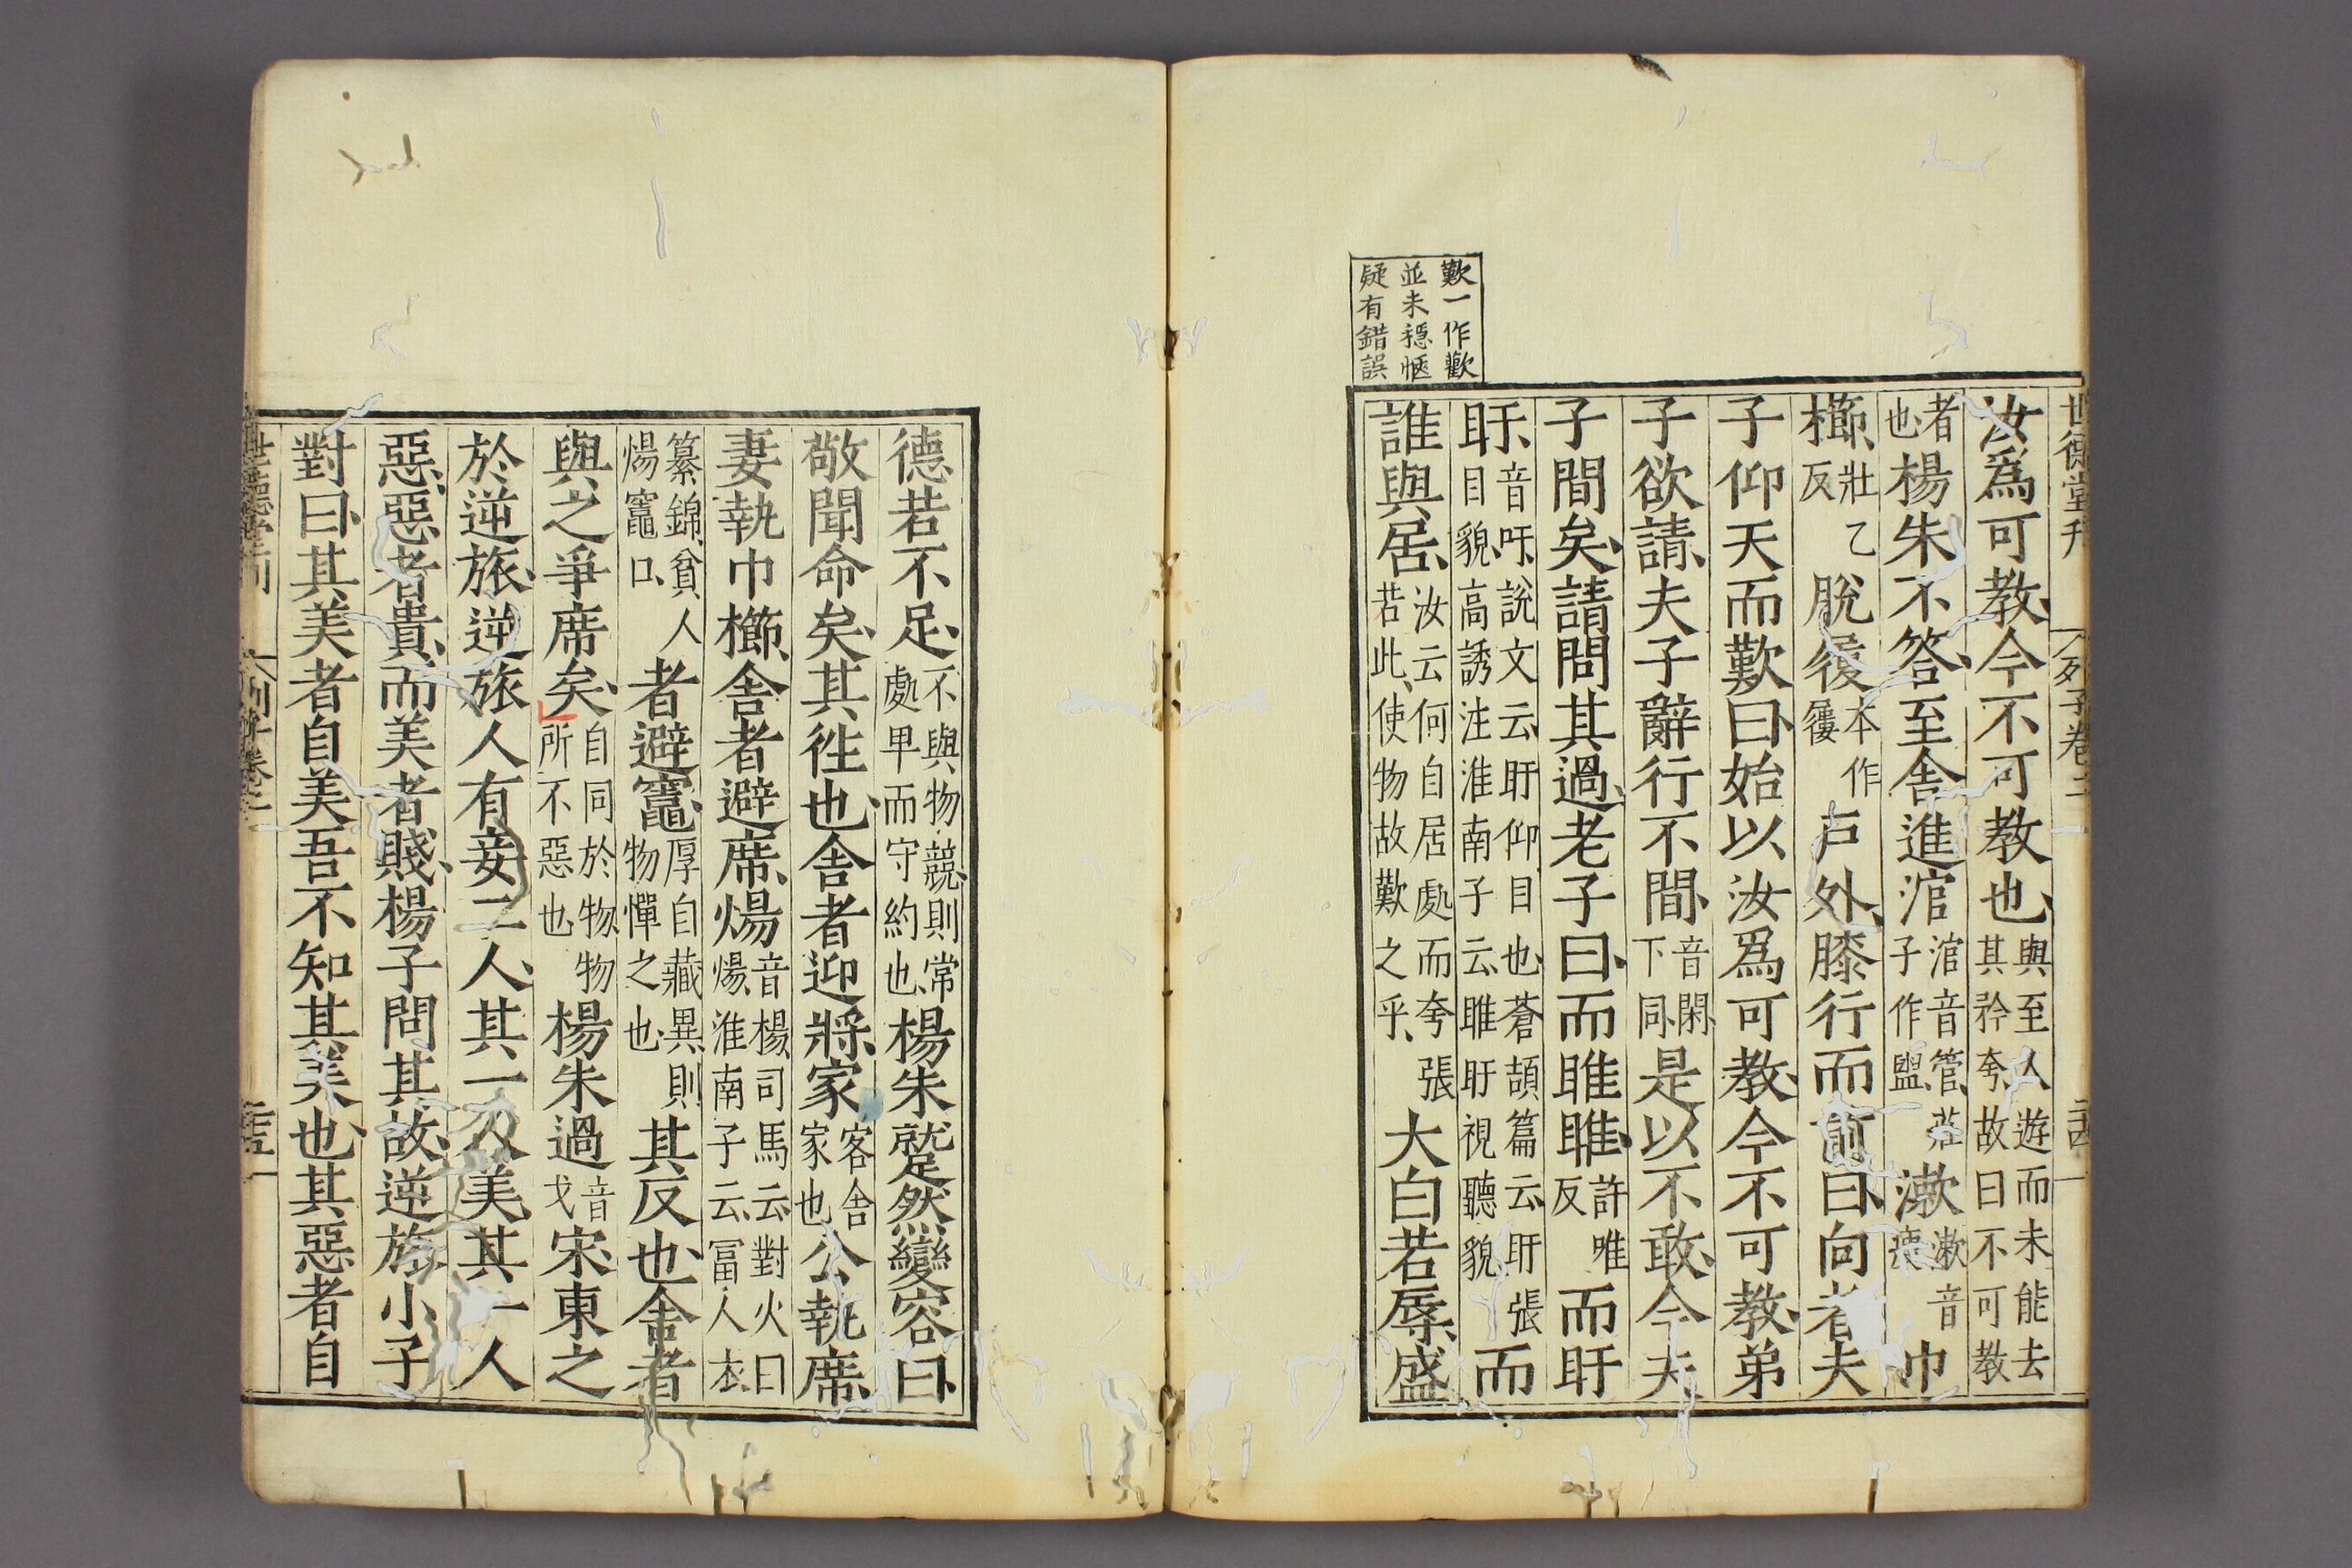 世德堂刊 列子卷二 二十四
汝爲可教今不可教也與至人遊而未能去其矜夸故曰不可教
者也楊朱不答至舍進涫涫音管莊子作盥漱漱音巾
櫛壯乙反脫履本作屨戸外膝行而前曰向者夫
子仰天而歎曰始以汝爲可教今不可教弟
子欲請夫子辭行不間音閑下同是以不敢今夫
子間矣請問其過老子曰而睢睢許唯反而盱
盱音吁說文云盱仰目也蒼頡篇云盱張目貌高誘注淮南子云睢盱視聽貌而
誰與居汝云何自居處而夸張若此使物故歎之乎大白若辱盛
歎一作歡
並未穩愜
疑有錯誤
德若不足不與物競則常處卑而守約也楊朱蹵然變容曰
敬聞命矣其徃也舍者迎將家客舍家也公執席
妻執巾櫛舍者避席煬音楊司馬云對火曰煬淮南子云冨人衣
纂錦貧人煬竈口者避竈厚自藏異則物憚之也其反也舍者
與之爭席矣自同於物物所不惡也楊朱過音戈宋東之
於逆旅逆旅人有妾二人其一人美其一人
惡惡者貴而美者賤楊子問其故逆旅小子
對曰其美者自美吾不知其美也其惡者自
世德堂刊 列子卷二 二十五